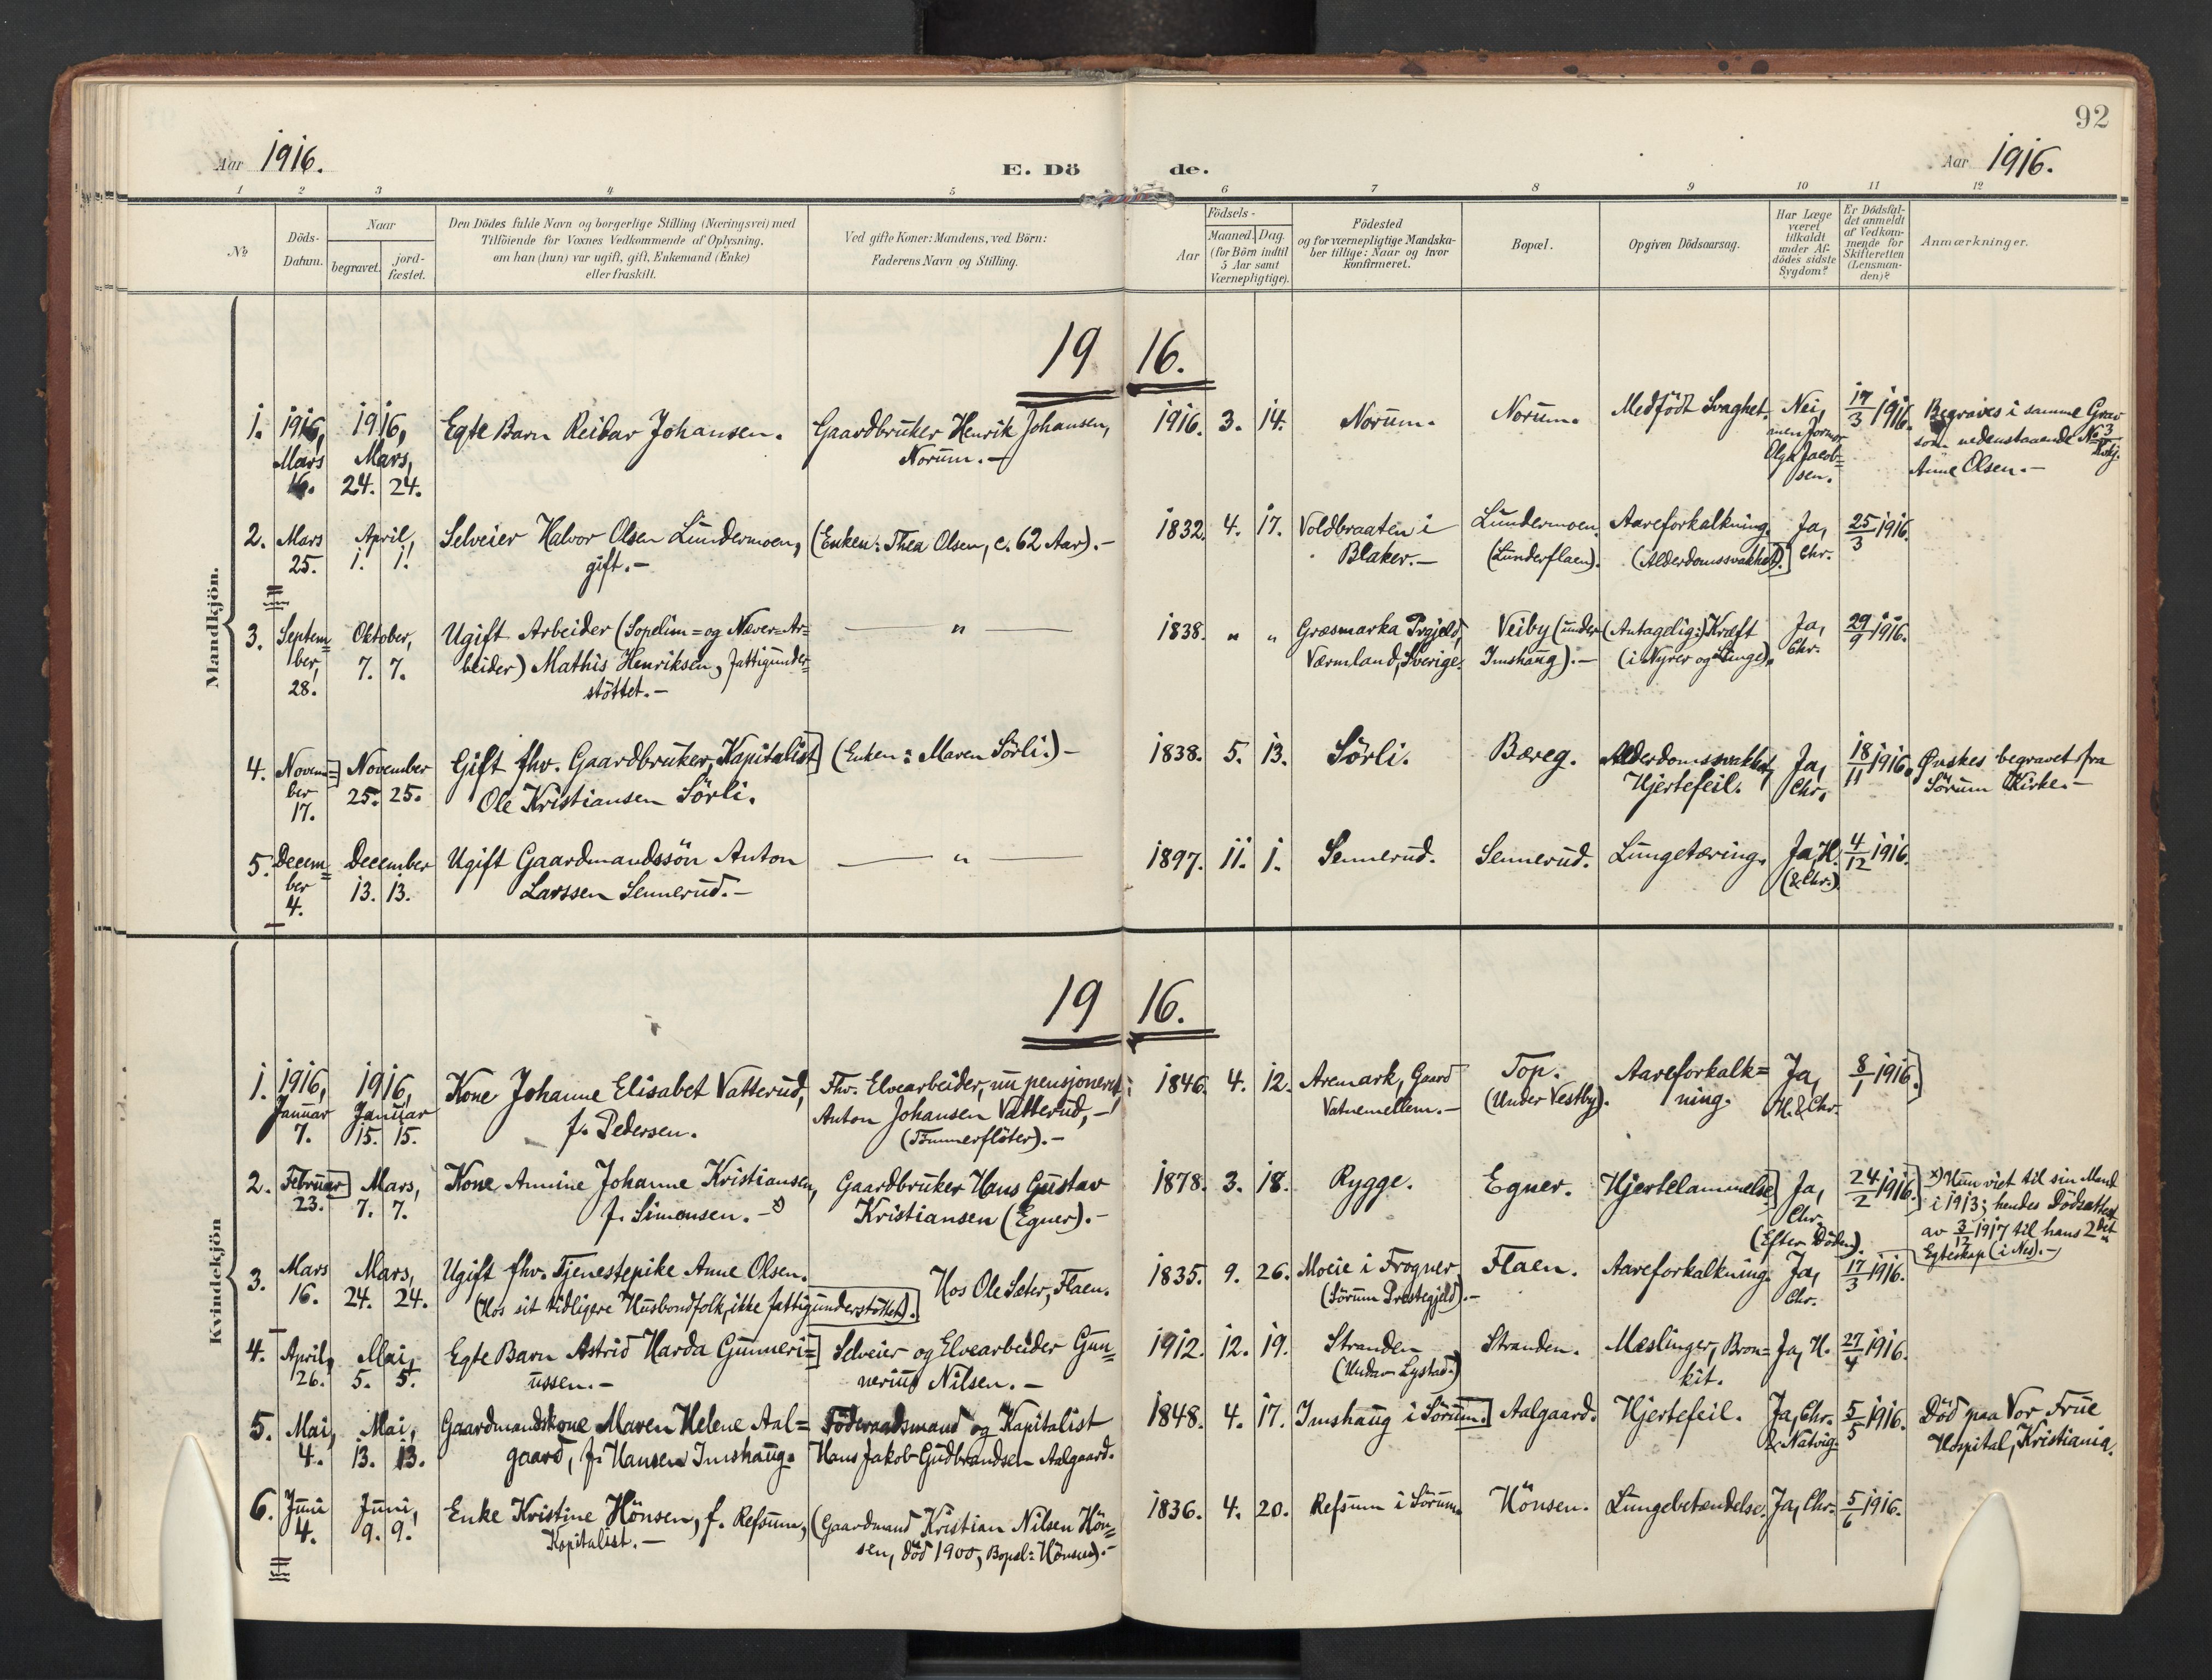 92
Aar 1916.
E. Dö de.
Aar 1916.
1 2 3 4 5 6 7 8 9 10 11 12
No
Döds-
Datum.
Naar
begravet.
jord-
fæstet.
Den Dödes fulde Navn og borgerlige Stilling (Næringsvei) med
Tilföiende for Voxnes Vedkommende af Oplysning,
om han (hun) var ugift, gift, Enkemand (Enke)
eller fraskilt.
Ved gifte Koner: Mandens, ved Börn:
Faderens Navn og Stilling.
Aar
Födsels-
Maaned. Dag.
(for Börn indtil
5 Aar samt
Værnepligtige).
Födested
og for værnepligtige Mandska-
ber tillige: Naar og hvor
konfirmeret.
Bopæl.
Opgiven Dödsaarsag.
Har Læge
været
tilkaldt
under Af-
dödes sidste
Sygdom?
Er Dödsfal-
det anmeldt
af Vedkom-
mende for
Skifteretten
(Lensman-
den)?
Anmærkninger.
Mandkjön.
19 16.
1.
1916,
Mars
16.
1916,
Mars,
24. 24.
Egte Barn Reidar Johansen.
Gaardbruker Henrik Johansen,
Norum.-
1916. 3. 14.
Norum.
Norum.
Medfödt Svaghet.
Nei,
men Jormor
Olga Jacob=
sen.
17/3 1916.
Begraves i samme Grav
som nedenstaaende No 3
Kvkj.
Anne Olsen.-
2.
Mars
25.
April,
1. 1.
Selveier Halvor Olsen Lundermoen,
gift.-
(Enken: Thea Olsen, c. 62 Aar).-
1832. 4. 17.
Voldbraaten i
Blaker.-
Lundermoen.
(Lunderflaen).
Aareforkalkning.
(Alderdomssvakhet).
Ja,
Chr.
25/3 1916.
3.
Septem=
ber,
28.
Oktober,
7. 7.
Ugift Arbeider (Sopelim= og Næver=Ar=
beider) Mathis Henriksen, fattigunder=
støttet.-
"
1838. " "
Græsmarka Prgjeld,
Værmland, Sverige.
Veiby (under
Imshaug).-
(Antagelig:) Kræft
(i Nyrer og Lunge).
Ja,
Chr.
29/9 1916.
4.
Novem=
ber
17.
November
25. 25.
Gift fhv. Gaardbruker, Kapitalist
Ole Kristiansen Sörli.
(Enken: Maren Sörli.)-
1838. 5. 13.
Sörli.
Bæreg.
Alderdomssvakhet,
Hjertefeil.
Ja,
Chr.
18/11 1916.
Önskes begravet fra
Sörum Kirke.-
5.
Decem=
ber
4.
December
13. 13.
Ugift Gaardmandssön Anton
Larssen Sennerud.-
"
1897. 11. 1.
Sennerud.
Sennerud.
Lungetæring.
Ja, H.
(& Chr.)
4/12 1916.
Kvindekjön
19 16.
1.
1916,
Januar
7.
1916,
Januar
15. 15.
Kone Johanne Elisabet Vatterud,
f. Pedersen.
Fhv. Elvearbeider, nu pensjoneret,
Anton Johansen Vatterud,-
(Tömmerflöter).-
1846. 4. 12.
Aremark, Gaard
Vatnemellem.-
Top.
(Under Vestby).
Aareforkalk=
ning.
Ja,
H. & Chr.
8/1 1916.
2.
Februar
23.
Mars,
7. 7.
Kone Annine Johanne Kristiansen,
f. Simensen.- x)
Gaardbruker Hans Gustav
Kristiansen (Egner).-
1878. 3. 18.
Rygge.
Egner.
Hjertelammelse
Ja,
Chr.
(Efter Döden).
24/2 1916.
x) Hun viet til sin Mand
i 1913; hendes Dödsattest
av 3/12 1917 til hans 2det
Egteskap (i Nes).-
3.
Mars
16.
Mars,
24. 24.
Ugift fhv. Tjenestepike Anne Olsen.
(Hos sit tidligere Husbondfolk, ikke fattigunderstöttet).
Hos Ole Sæter, Flaen.
1835. 9. 26.
Moeie i Frogner
(Sörum Prestegjeld).-
Flaen.
Aareforkalkning.
Ja,
Chr.
17/3 1916.
4.
April,
26.
Mai,
5. 5.
Egte Barn Astrid Harda Gunneri=
ussen.-
Selveier og Elvearbeider Gun=
nerius Nilsen.-
1912. 12. 19.
Stranden
(Under Lystad.)
Stranden.
Mæslinger, Bron=
kit.
Ja, H.
27/4 1916.
5.
Mai,
4.
Mai,
13. 13.
Gaardmandskone Maren Helene Aal=
gaard, f. Hansen Imshaug.
Föderaadsmand og Kapitalist
Hans Jakob Gudbrandsen Aalgaard.
1848. 4. 17.
Imshaug i Sörum.
Aalgaard.
Hjertefeil.
Ja, Chr.
& Natvig.
5/5 1916.
Död paa Vor Frue
Hospital, Kristiania.
6.
Juni
4.
Juni,
9. 9.
Enke Kristine Hönsen, f. Refsum,
Kapitalist.-
(Gaardmand Kristian Nilsen Hön=
sen, död 1900, Bopæl: Hönsen).-
1836. 4. 20.
Refsum i Sörum.
Hönsen.
Lungebetændelse.
Ja, Chr.
5/6 1916.